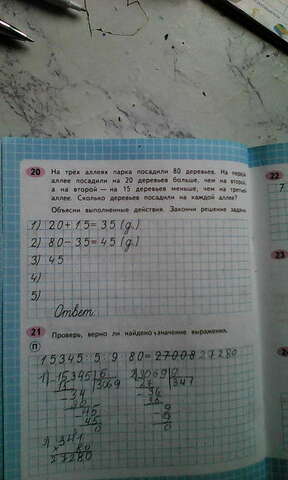 20 На трёх аллеях парка посадили 80 деревьев. На первой
аллее посадили на 20 деревьев больше, чем на второй,
а на второй — на 15 деревьев меньше, чем на третьей
аллее. Сколько деревьев посадили на каждой аллее?
Объясни выполненные действия. Закончи решение задачи.
1) 20 + 15 = 35 (д.)
2) 80 - 35 = 45 (д.)
3) 45
4)
5)
Ответ
21 Проверь, верно ли найдено значение выражения.
П
15345 : 5 : 9 80 = 27008 27280
1) 15345 5 2) 3069 9
15 3069 27 347
34 36
30
45 9
45 9
0 0
3) 341
80
27280
22
7
23